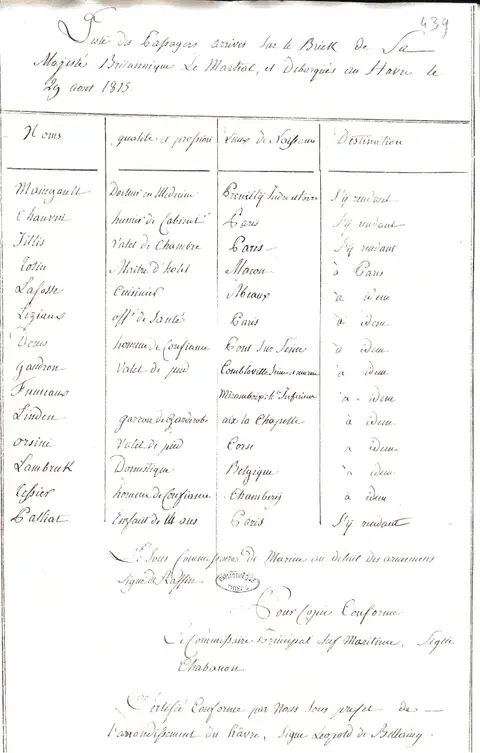 439
Liste des Passagers arrivés sur le Brick de Sa
Majesté Britannique Le Martial, et Debarqués au Havre le
29 aout 1815.
Noms qualité et profession Lieux de Naissance Destination
Maingault Docteur en Medecine Preuilly Indre et Loire S'y rendant
Chauvin huissier de Cabinet Paris S'y rendant
Fillis Valet de Chambre Paris S'y rendant
Totin Maitre d'hotel Macon à Paris
Lafosse Cuisinier Meaux à idem
Leziaux off.r de Santé Paris à idem
Denis homme de Confiance Pont sur Seine à idem
Gandron Valet de pied Combleville Seine et marne à idem
Funneaux inferieure à idem
Linden garcon de Garderobe aix la Chapelle à idem
orsini Valet de pied Corse à idem
Lambruk Domestique Belgique à idem
Tessier homme de Confiance Chambery à idem
Palliat Enfant de 14 ans Paris S'y rendant
Le Sous Commissaire de Marine au detail des armemens
Signé de Raffin.
Pour Copie Conforme
Le Commissaire Principal chef Maritime, Signé
Chabanon
Certifié Conforme par Nous Sous prefet de
l'arrondissement du hâvre, Signé Léopold de Bellaing